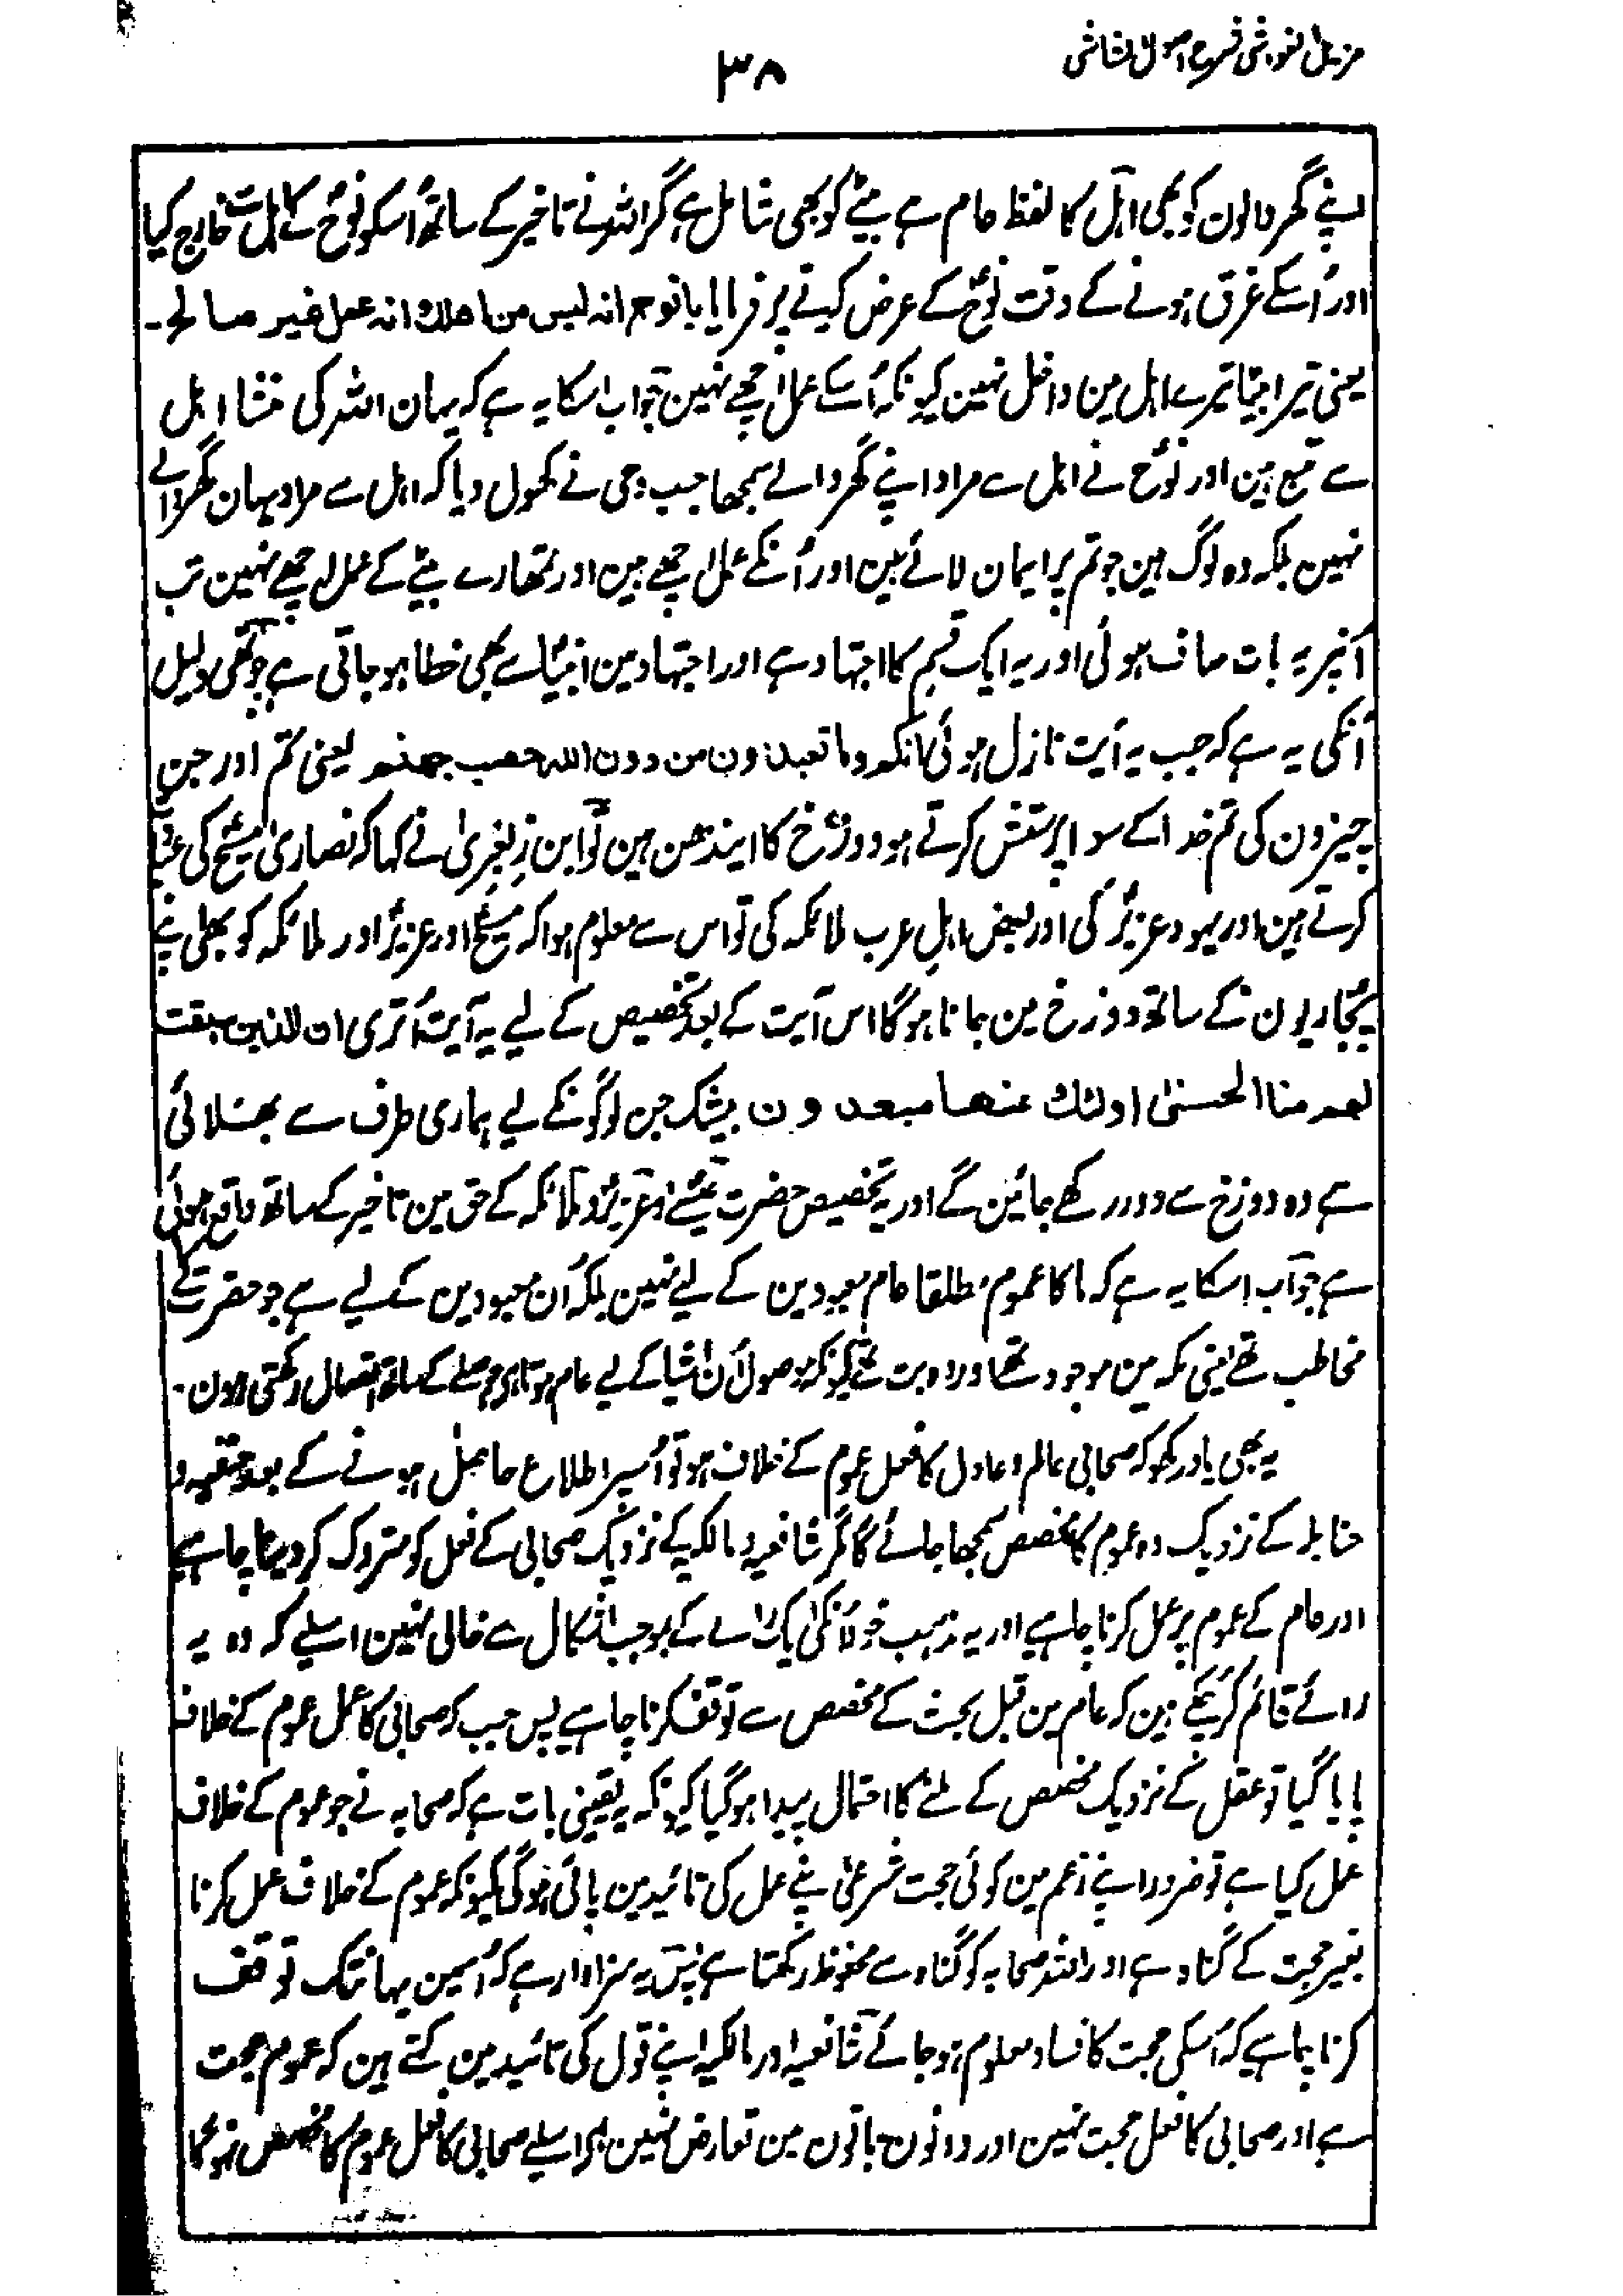 مزیل الغواشی شرح اصول الشاشی
۳۸
اپنے گھر والون کو بھی اہل کا لفظ عام ہے بیٹے کو بھی شامل ہے مگر اللہ نے تاخیر کے ساتھ اُسکو نوحؑ کے اہل سے خارج کیا
اور اُسکے غرق ہونے کے وقت نوحؑ کے عرض کرنے پر فرمایا یا نوح انہ لیس من اھلک انہ عمل غیر صالح۔
یعنی تیرا بیٹا تیرے اہل مین داخل نہین کیونکہ اُسکے عمل اچھے نہین جواب اسکا یہ ہے کہ یہان اللہ کی منشا اہل
سے متبع ہین اور نوحؑ نے اہل سے مراد اپنے گھر والے سمجھا جب وحی نے کھول دیا کہ اہل سے مراد یہان گھر والے
نہین بلکہ وہ لوگ ہین جو تم پر ایمان لائے ہین اور اُنکے عمل اچھے ہین اور تمھارے بیٹے کے عمل اچھے نہین تب
اُنپر یہ بات صاف ہوئی اور یہ ایک قسم کا اجتہاد ہے اور اجتہاد مین انبیاؑ سے بھی خطا ہو جاتی ہے چوتھی دلیل
اُنکی یہ ہے کہ جب یہ آیت نازل ہوئی انکم وما تعبدون من دون اللہ حصب جھنم یعنی تم اور جن
چیزون کی تم خدا کے سوا پرستش کرتے ہو دوزخ کا ایندھن ہین تو ابن زبعریٰ نے کہا کہ نصاریٰ مسیحؑ کی عبادت
کرتے ہین اور یہود عزیرؑ کی اور بعض اہل عرب ملائکہ کی تو اس سے معلوم ہوا کہ مسیحؑ اور عزیرؑ اور ملائکہ کو بھی اپنے
پجاریون کے ساتھ دوزخ مین جانا ہوگا اس آیت کے بعد تخصیص کے لیے یہ آیت اُتری ان الذین سبقت
لھم منا الحسنیٰ اولئک عنھا مبعدون بیشک جن لوگونکے لیے ہماری طرف سے بھلائی
ہے وہ دوزخ سے دور رکھے جائین گے اور یہ تخصیص حضرت عیسےٰؑ و عزیرؑ و ملائکہ کے حق مین تاخیر کے ساتھ واقع ہوئی
ہے جواب اسکا یہ ہے کہ ما کا عموم مطلقا عام معبودین کے لیے نہین بلکہ اُن معبودین کے لیے ہے جو حضرت کے
مخاطب تھے یعنی مکہ مین موجود تھے اور وہ بت تھے کیونکہ موصول اُن اشیا کے لیے عام ہوتا ہے جو صلے کے ساتھ اتصال رکھتی ہون۔
یہ بھی یاد رکھو کہ صحابی عالم و عادل کا فعل عموم کے خلاف ہو تو اُسپر اطلاع حاصل ہونے کے بعد حنفیہ و
حنابلہ کے نزدیک وہ عموم کا مخصص سمجھا جائے گا مگر شافعیہ و مالکیہ کے نزدیک صحابی کے فعل کو متروک کر دینا چاہیے
اور عام کے عموم پر عمل کرنا چاہیے اور یہ مذہب خود اُنکی ایک رائے کے بموجب اشکال سے خالی نہین اسلیے کہ وہ یہ
رائے قائم کر چکے ہین کہ عام مین قبل بحث کے مخصص سے توقف کرنا چاہیے پس جب کہ صحابی کا عمل عموم کے خلاف
پایا گیا تو عقل کے نزدیک مخصص کے ملنے کا احتمال پیدا ہو گیا کیونکہ یہ یقینی بات ہے کہ صحابہ نے جو عموم کے خلاف
عمل کیا ہے تو ضرور اپنے زعم مین کوئی حجت شرعی اپنے عمل کی تائید مین پائی ہوگی کیونکہ عموم کے خلاف عمل کرنا
بغیر حجت کے گناہ ہے اور اللہ صحابہ کو گناہ سے محفوظ رکھتا ہے پس یہ سزاوار ہے کہ اُسمین یہانتک توقف
کرنا چاہیے کہ اُسکی حجت کا فساد معلوم ہو جائے شافعیہ اور مالکیہ اپنے قول کی تائید مین کہتے ہین کہ عموم حجت
ہے اور صحابی کا فعل حجت نہین اور دونون باتون مین تعارض نہین پس اسلیے صحابی کا فعل عموم کا مخصص نہوگا